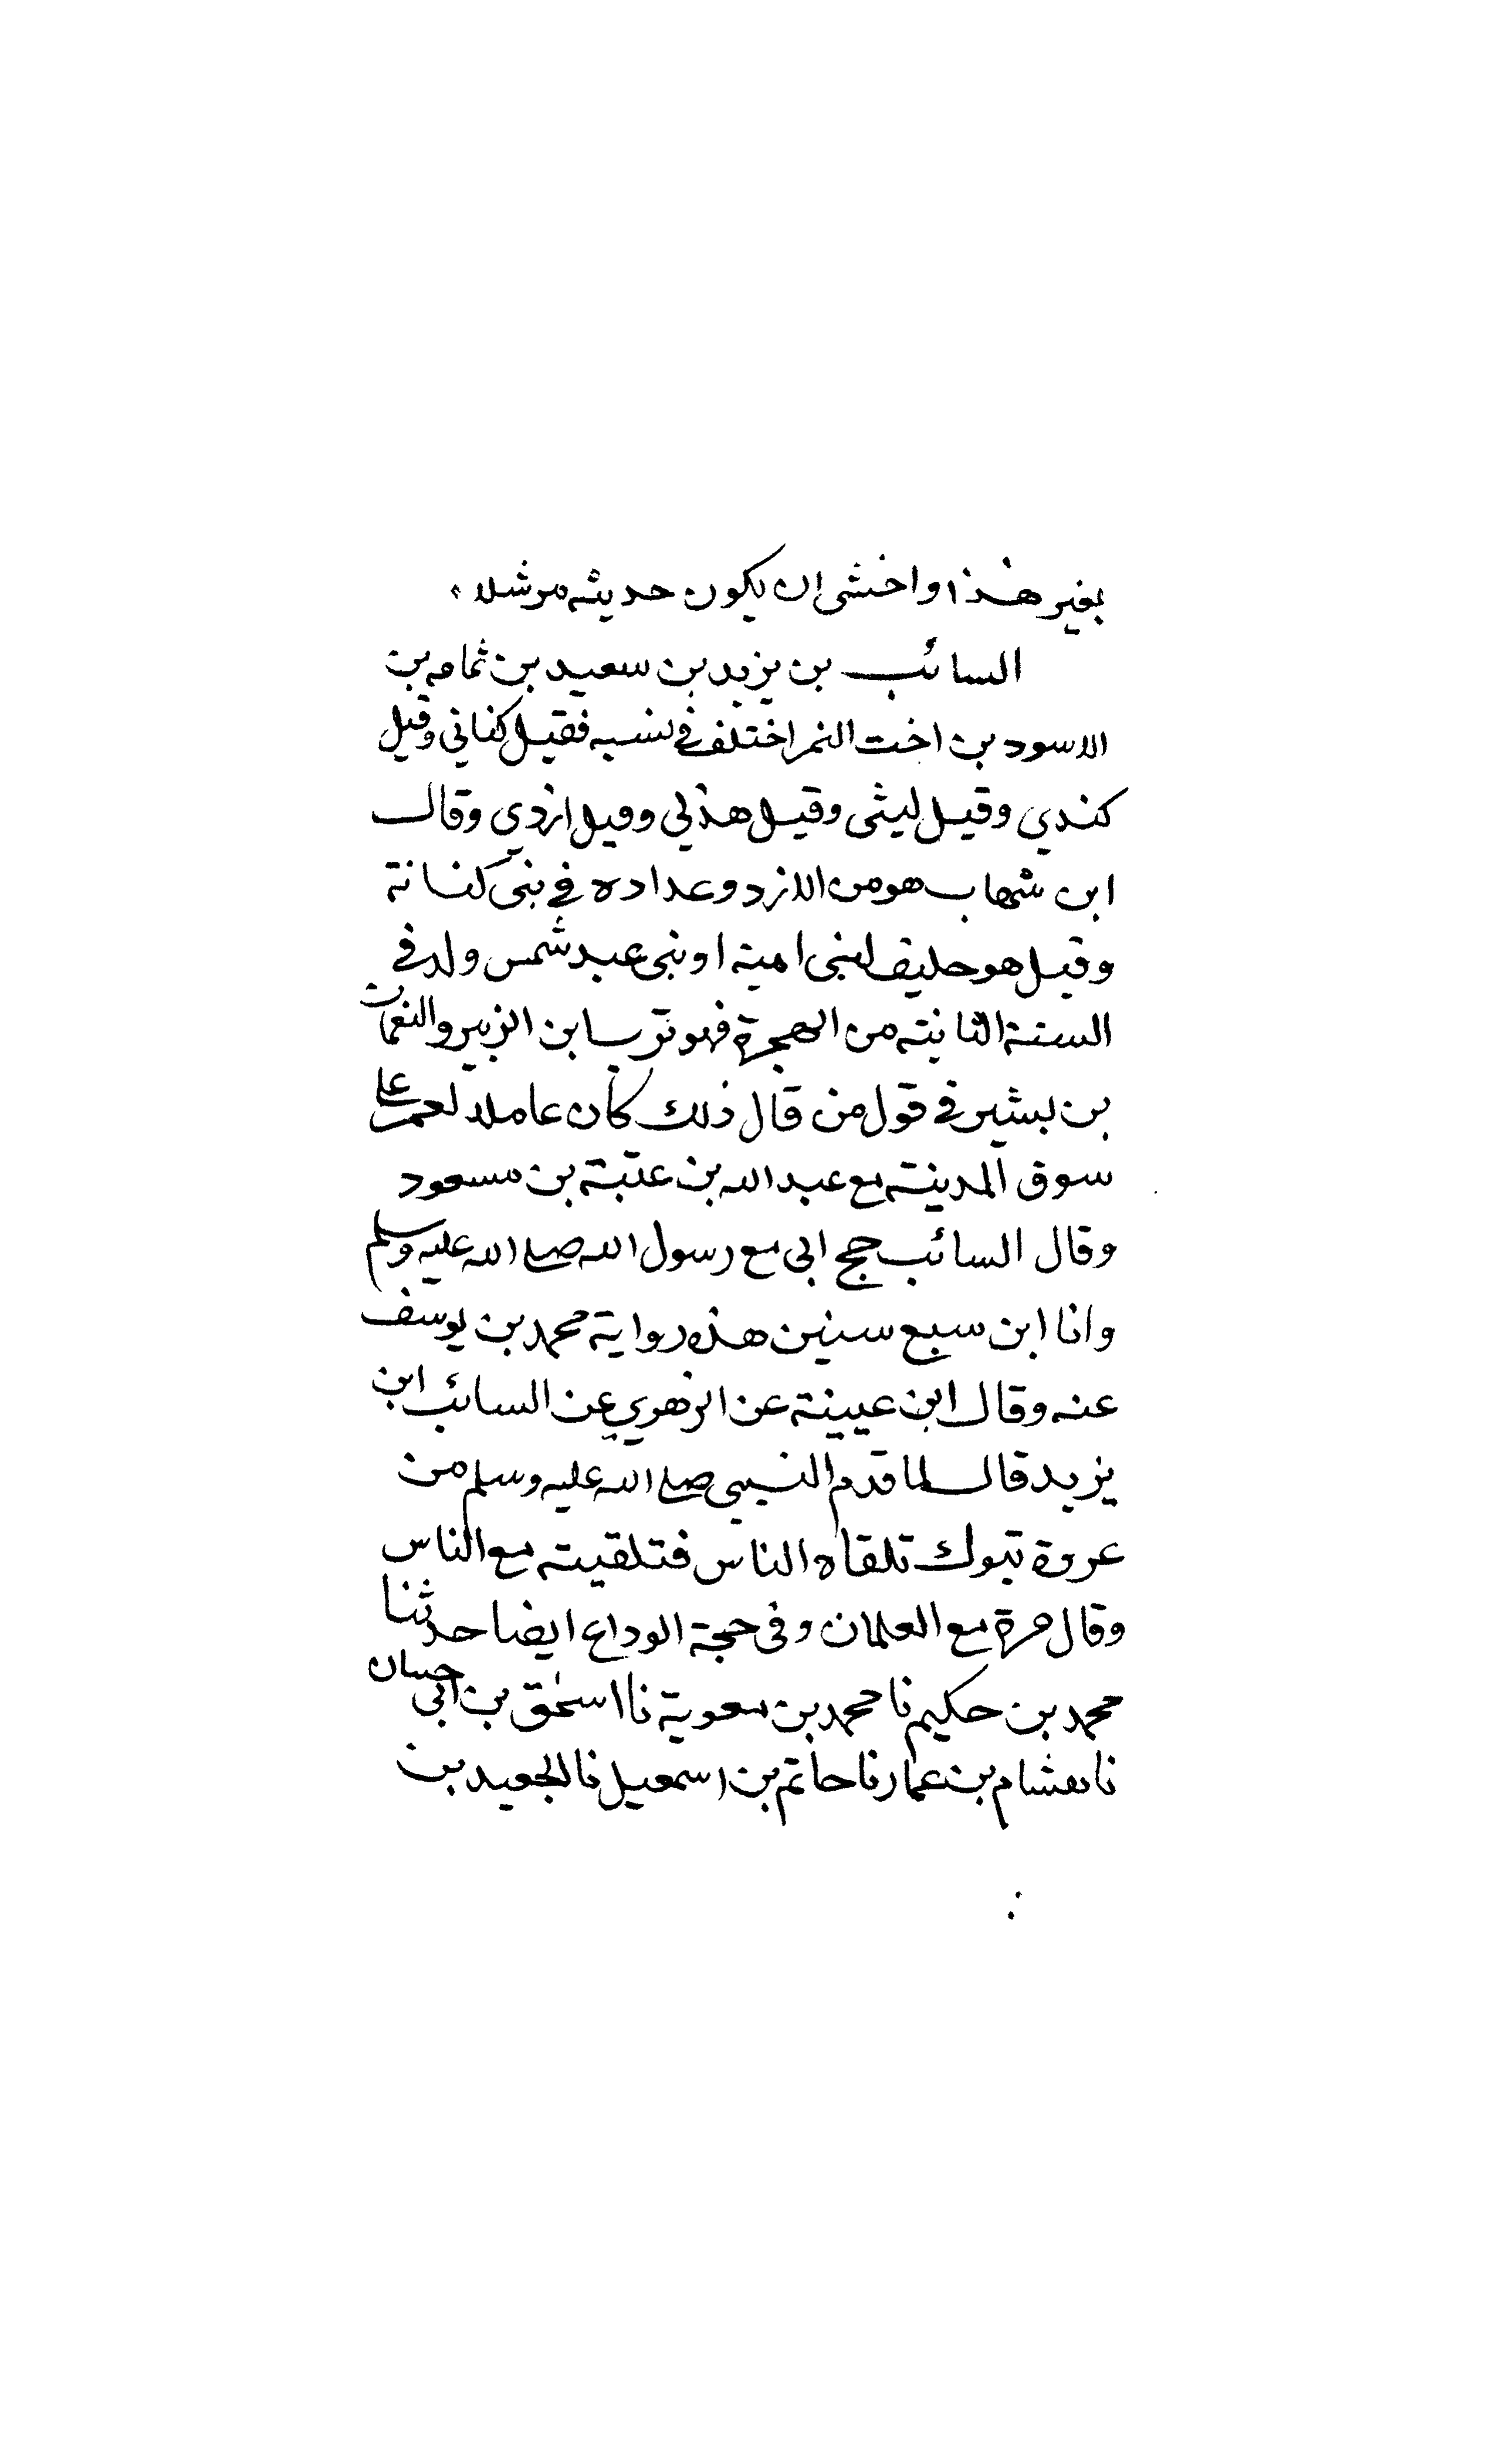 بغير هذا واخشى ان يكون حديثه مرسلا
السائب بن يزيد بن سعيد بن ثمامه بن
الاسود بن اخت النمر اختلف في نسبه فقيل كناني وقيل
كندي وقيل ليثى وقيل هذلي وقيل ازدي وقال
ابن شهاب هو من الازد وعداده في بنى كنانة
وقيل هو حليف لبنى امية او بنى عبد شمس ولد في
السنة الثانية من الهجرة فهو ترب ابن الزبير والنعمان
بن بشير في قول من قال ذلك كان عاملا لعمر على
سوق المدينة مع عبد الله بن عتبة بن مسعود
وقال السائب حج ابى مع رسول الله صلى الله عليه وسلم
وانا ابن سبع سنين هذه رواية محمد بن يوسف
عنه وقال ابن عيينة عن الزهري عن السائب ابن
يزيد قال لما قدم النبي صلى الله عليه وسلم من
عروة تبوك تلقاه الناس فتلقيته مع الناس
وقال مرة مع العلمان وفى حجة الوداع ايضا حدثنا
محمد بن حكيم نا محمد بن معوية نا اسحق بن ابى حسان
نا هشام بن عمار نا حاتم بن اسمعيل نا الجعيد بن